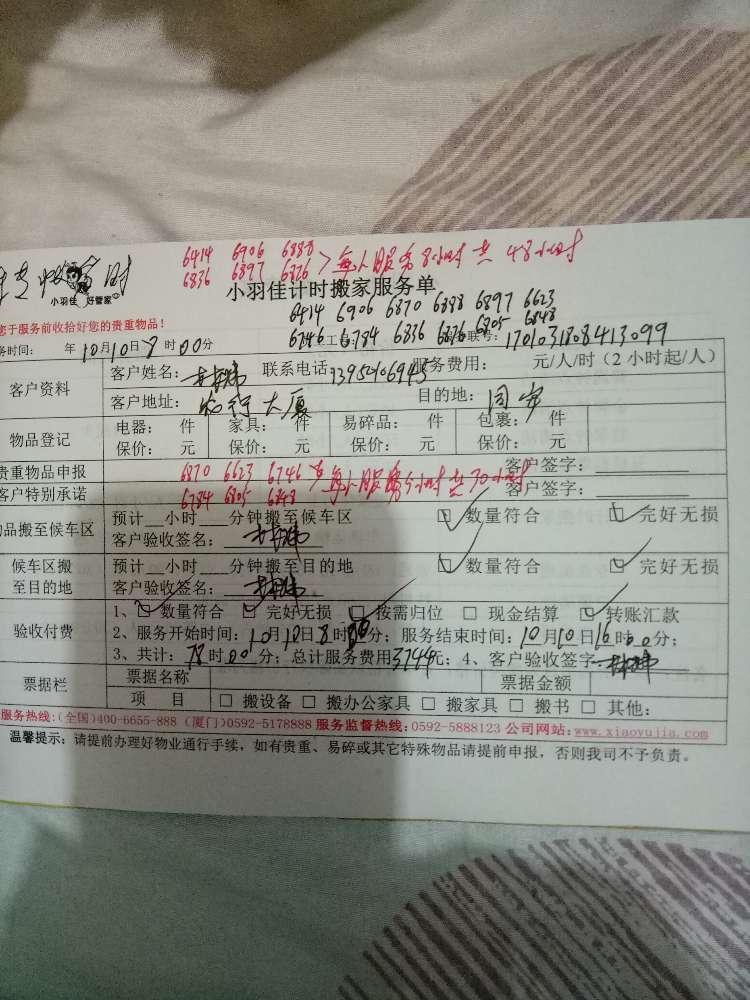 6414 6906 6888
6836 6897 6826 > 每人服务8小时 共 48小时
小羽佳 好管家
小羽佳计时搬家服务单
您于服务前收拾好您的贵重物品!
6414 6906 6870 6888 6897 6623
6746 6784 6836 6826 6805 6848
务时间: 年10月10日8时00分 工 联号: 1701031808413099
客户资料 客户姓名: 联系电话: 服务费用: 元/人/时(2小时起/人)
客户地址: 农行大厦 目的地: 同安
物品登记 电器: 件 家具: 件 易碎品: 件 包裹: 件
保价: 元 保价: 元 保价: 元 保价: 元
贵重物品申报 6870 6623 6746 客户签字:
客户特别承诺 6784 6805 6848 每人服务5小时 共30小时 客户签字:
物品搬至候车区 预计__小时___分钟搬至候车区 ☑ 数量符合 ☑ 完好无损
客户验收签名:
候车区搬至目的地 预计__小时___分钟搬至目的地 ☑ 数量符合 ☑ 完好无损
客户验收签名:
验收付费 1、☑ 数量符合 ☑ 完好无损 ☑ 按需归位 □ 现金结算 ☑ 转账汇款
2、服务开始时间: 10月10日8时00分; 服务结束时间: 10月10日16时00分;
3、共计: 78时00分; 总计服务费用3744元; 4、客户验收签字
票据栏 票据名称 票据金额
项 目 □ 搬设备 □ 搬办公家具 □ 搬家具 □ 搬书 □ 其他:
服务热线:(全国)400-6655-888 (厦门)0592-5178888 服务监督热线:0592-5888123 公司网站:www.xiaoyujia.com
温馨提示: 请提前办理好物业通行手续, 如有贵重、易碎或其它特殊物品请提前申报, 否则我司不予负责。